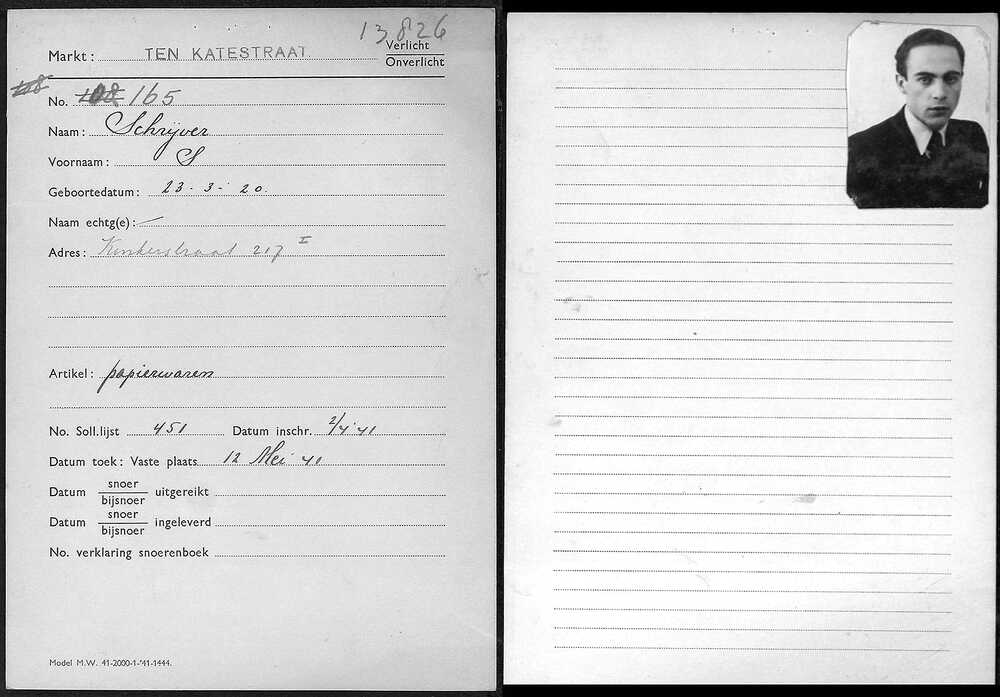 13826
Markt: TEN KATESTRAAT Verlicht
Onverlicht
108
No. 108 165
Naam: Schrijver
Voornaam: S
Geboortedatum: 23-3-20.
Naam echtg(e): —
Adres: Kinkerstraat 217 I
Artikel: papierwaren
No. Soll.lijst 451 Datum inschr. 2/4 '41
Datum toek: Vaste plaats 12 Mei 41
Datum snoer
bijsnoer uitgereikt
Datum snoer
bijsnoer ingeleverd
No. verklaring snoerenboek
Model M.W. 41-2000-1-'41-1444.